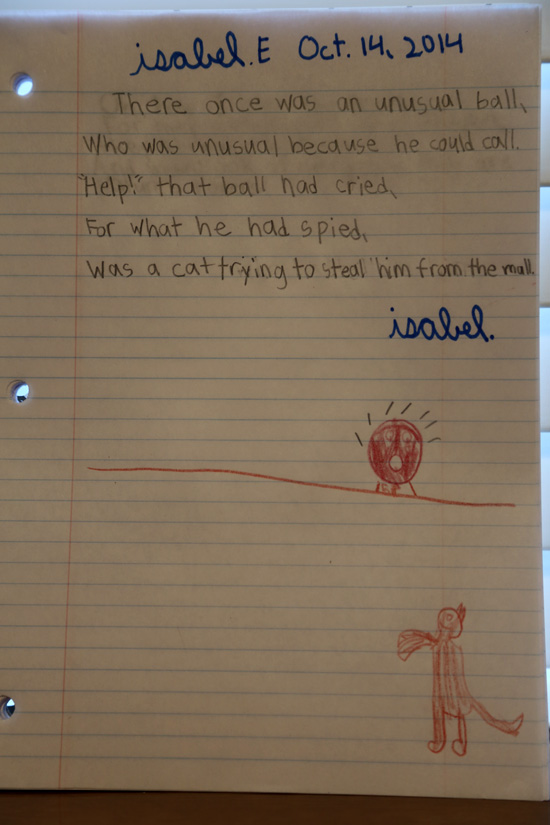 isabel.E Oct. 14, 2014
There once was an unusual ball,
Who was unusual because he could call.
"Help!" that ball had cried,
For what he had spied,
Was a cat trying to steal him from the mall.
isabel.